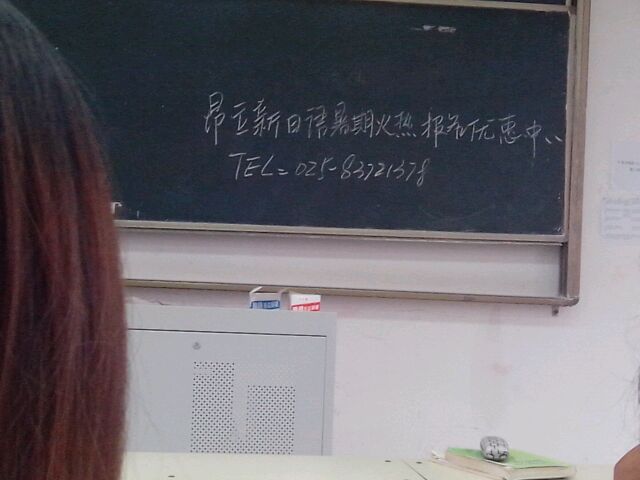 昂立新日语暑期火热报名优惠中..
TEL=025-83721378